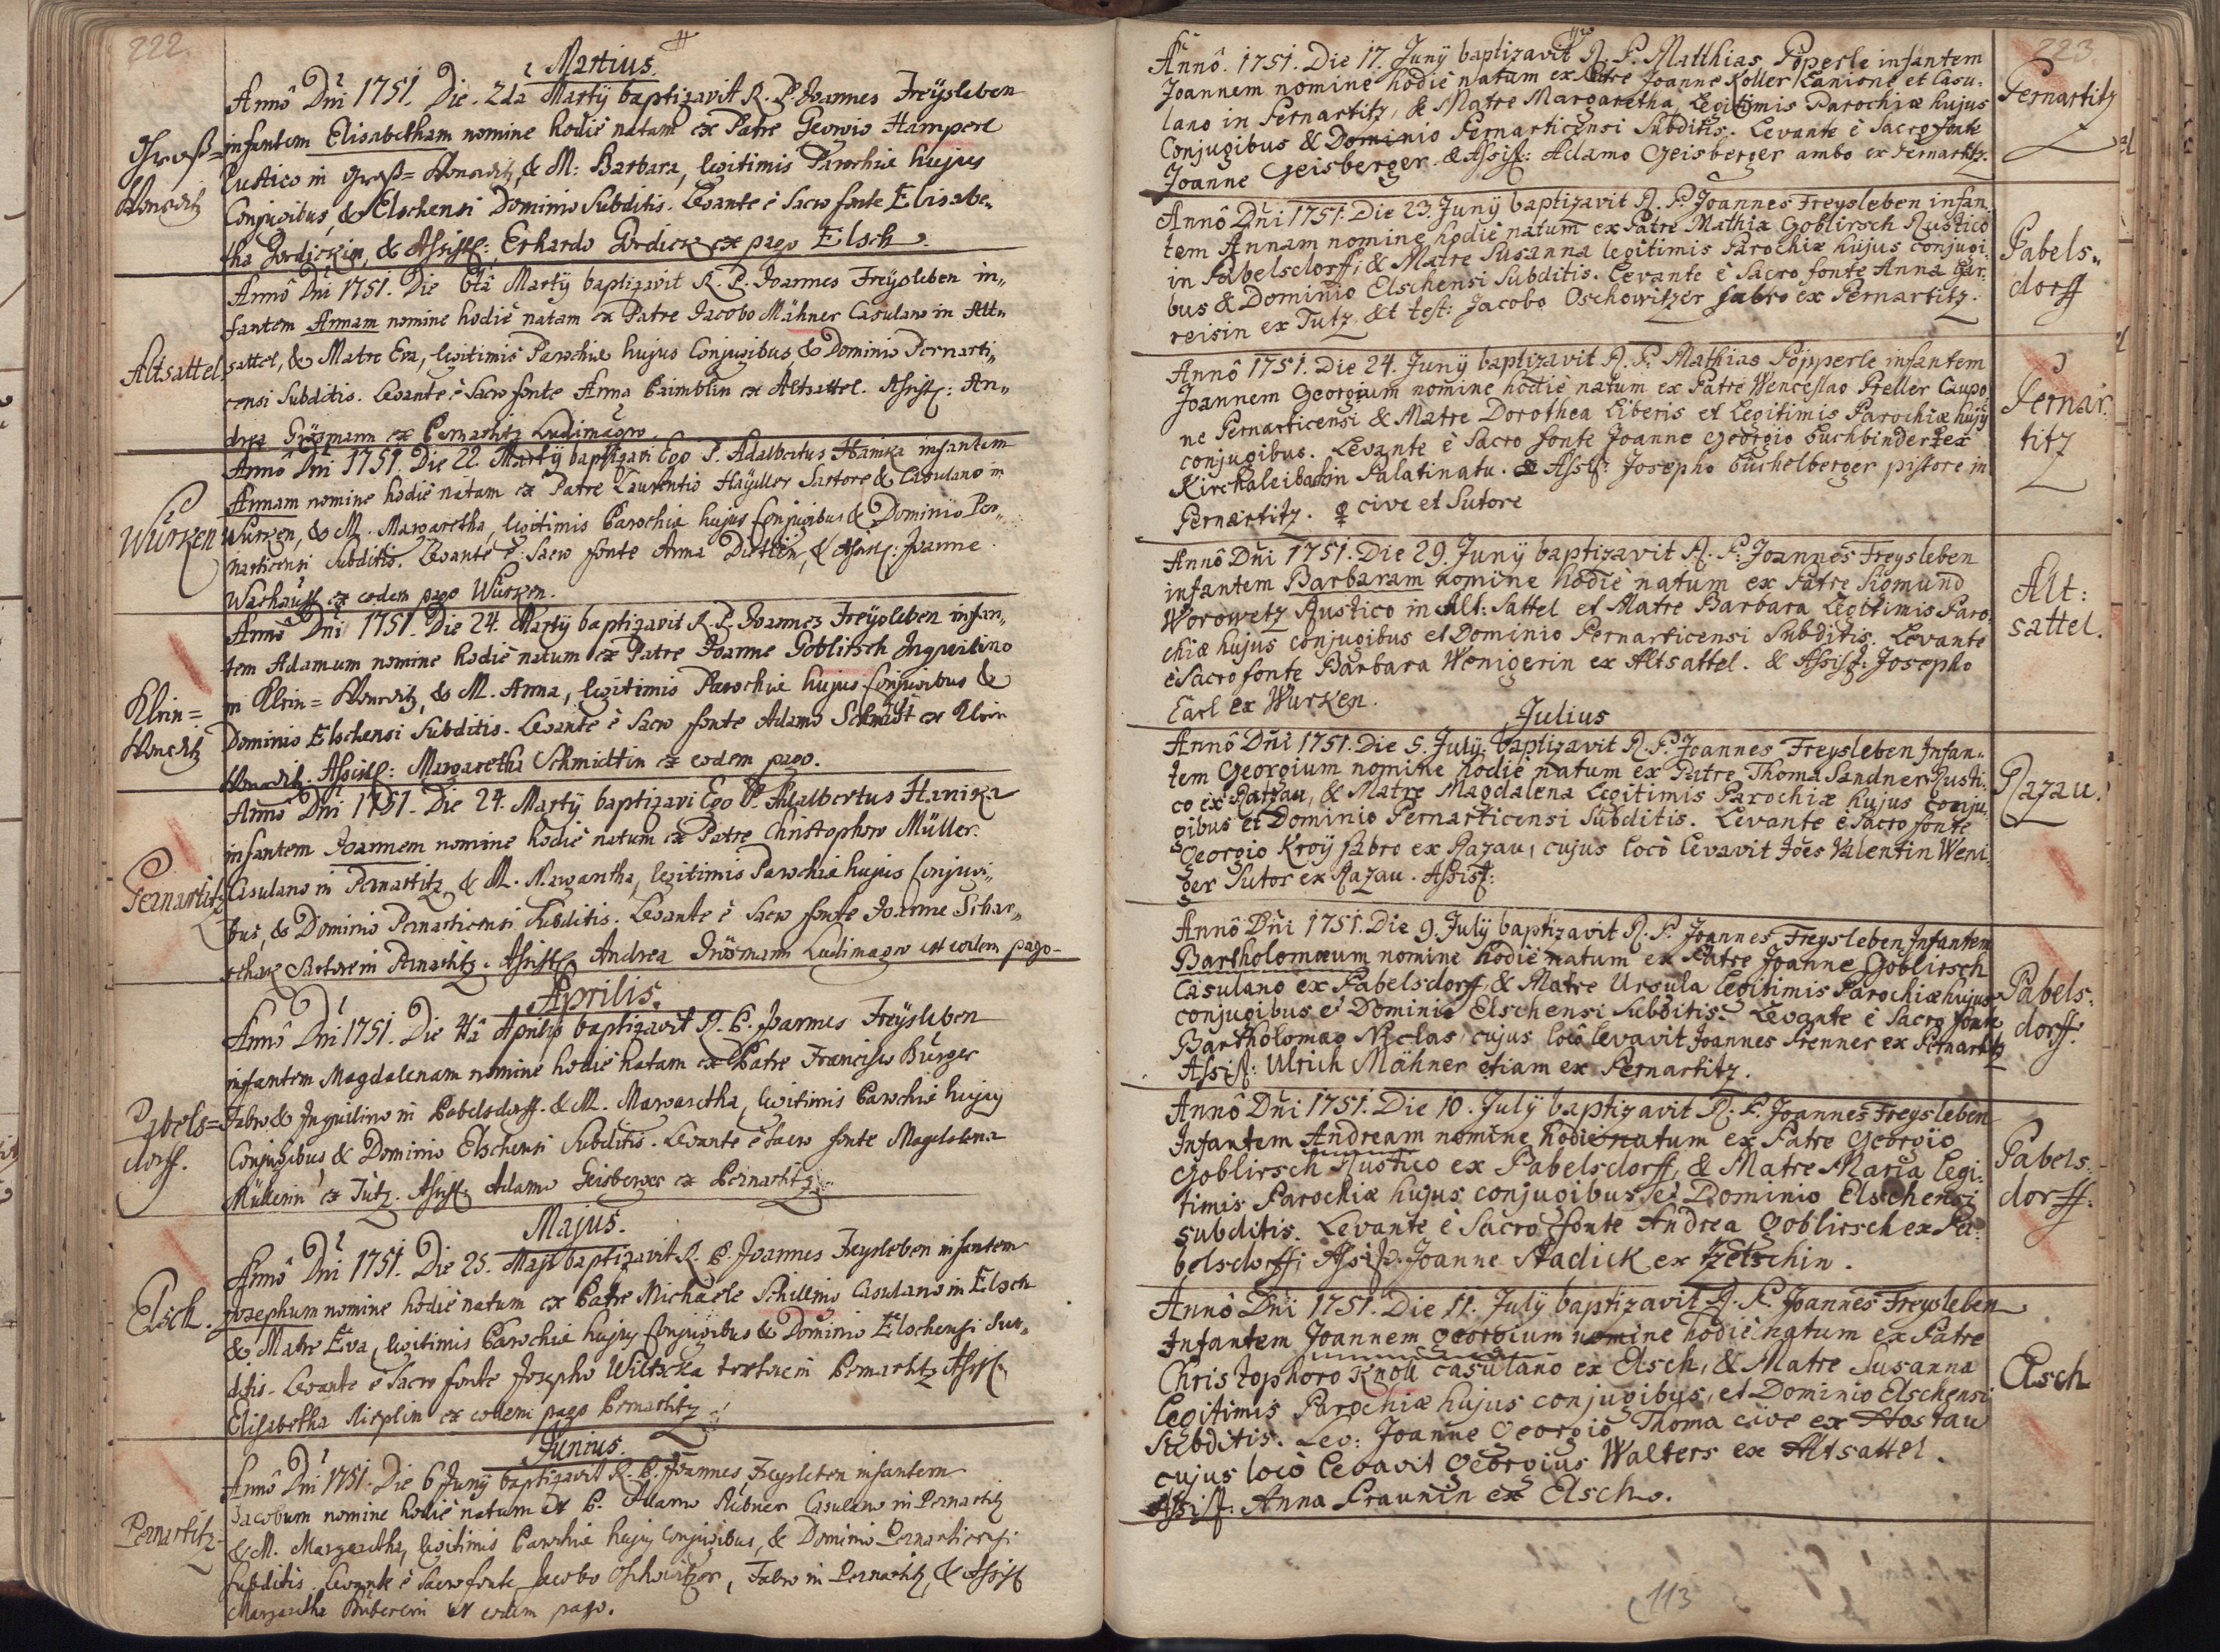 222.
Martius.
Annô Dni 1751. Die 2da Martÿ baptizavit R. P. Joannes Freÿsleben
Groß=
infantem Elisabetham nomine hodiè natam ex Patre Georgio Hamperl
Wonsditz
Rustico in Groß=Wonsditz, & M: Barbara, legitimis Parochiæ hujus
Conjugibus, & Elschensi Dominio Subditis. Levante è Sacro fonte Elisabe„
tha Gordickin, & Assist: Erhardo Gordick ex pago Elsch.
Annô Dni 1751. Die 6tâ Martÿ baptizavit R. P. Joannes Freÿsleben in„
fantem Annam nomine hodiè natam ex Patre Jacobo Mähner Casulano in Alt„
Altsattel.
sattel, & Matre Eva, legitimis Parochiæ hujus Conjugibus & Dominio Pernarti„
censi Subditis. Levante è Sacro fonte Anna Baimblin ex Altsattel. Assist: An„
drea Grösmann ex Pernartitz Ludimagro.
Annô Dni 1751. Die 22. Martÿ baptizavi Ego P. Adalbertus Hanika infantem
Annam nomine hodiè natam ex Patre Laurentio Haÿuller Sartore & Casulano in
Wurken
Wurken, & M. Margaretha, legitimis Parochiæ hujus Conjugibus & Dominio Per„
narticensi Subditis. Levante è Sacro fonte Anna Dietlin, & Assist: Joanne
Warhaust ex eodem pago Wurken.
Annô Dni 1751. Die 24. Martÿ baptizavit R. P. Joannes Freÿsleben infan„
tem Adamum nomine hodiè natum ex Patre Joanne Goblirsch Inquilino
Klein=
in Klein=Wonsditz, & M. Anna, legitimis Parochiæ hujus Conjugibus &
Wonsditz
Dominio Elschensi Subditis. Levante è Sacro fonte Adamo Schmidt ex Klein
Wonsditz. Assist: Margaretha Schmidtin ex eodem pago.
Annô Dni 1751. Die 24. Martÿ baptizavi Ego P. Adalbertus Hanika
infantem Joannem nomine hodiè natum ex Patre Christophoro Müller
Pernartitz
Casulano in Pernartitz, & M. Margaretha, legitimis Parochiæ hujus Conjugi„
bus, & Dominio Pernarticensi Subditis. Levante è Sacro fonte Joanne Schar„
schack Sartore in Pernartitz. Assist: Andrea Grösmann Ludimagro ex eodem pago.
Aprilis.
Annô Dni 1751. Die 4tâ Aprilis baptizavit R. P. Joannes Freÿsleben
infantem Magdalenam nomine hodiè natam ex Patre Francisco Burger
Pabels=
Fabro & Inquilino in Pabelsdorff. & M. Margaretha, legitimis Parochiæ hujus
dorff.
Conjugibus & Dominio Elschensi Subditis. Levante è Sacro fonte Magdalena
Müllerin ex Tutz. Assist: Adamo Geisberger ex Pernartitz.
Majus.
Annô Dni 1751. Die 25. Maji baptizavit R. P. Joannes Freÿsleben infantem
Elsch.
Josephum nomine hodiè natum ex Patre Michaele Schilling Casulano in Elsch
& Matre Eva, legitimis Parochiæ hujus Conjugibus & Dominio Elschensi Sub„
ditis. Levante è Sacro fonte Josepho Wiltschka textore in Pernartitz Assist:
Elisabetha Rieplin ex eodem pago Pernartitz.
Junius.
Annô Dni 1751. Die 6 Junÿ baptizavit R. P. Joannes Freÿsleben infantem
Jacobum nomine hodiè natum ex P. Adamo Rübner Casulano in Pernartitz
Pernartitz.
& M. Margaretha, legitimis Parochiæ hujus Conjugibus, & Dominio Pernarticensi
subditis. Levante è Sacro fonte Jacobo Oschwitzer, Fabro in Pernartitz, & Assist
Margaretha Bubererin ex eodem pago.
223
Annô. 1751. Die 17. Junÿ baptizavit R. P. Matthias Pöperle infantem
Joannem nomine hodiè natum ex Patre Joanne Koller Lanione et Casu„
Pernartitz
lano in Pernartitz, & Matre Margaretha, Legitimis Parochiæ hujus
Conjugibus & Dominio Pernarticensi Subditis. Levante è Sacro fonte
Joanne Geisberger. & Assist: Adamo Geisberger ambo ex Pernartitz.
Annô Dni 1751. Die 23. Junÿ baptizavit R. P. Joannes Freysleben infan„
tem Annam nomine hodiè natum ex Patre Mathia Goblirsch Rustico
Pabels„
in Pabelsdorff, & Matre Susanna legitimis Parochiæ hujus conjugi„
dorff
bus & Dominio Elschensi Subditis. Levante è Sacro fonte Anna Gar„
reisin ex Tutz. Et test: Jacobo Oschowitzer fabro ex Pernartitz.
Annô 1751. Die 24. Junÿ baptizavit R. P. Mathias Pöpperle infantem
Joannem Georgium nomine hodiè natum ex Patre Wenceslao Preller Caupo„
Pernar„
ne Pernarticensi & Matre Dorothea Liberis et Legitimis Parochiæ hujg
titz
conjugibus. Levante è Sacro fonte Joanne Georgio Buchbinder ♀ ex
Kirchaleibach in Palatinatu. & Assist: Josepho Buchelberger pistore in
Pernartitz. ♀ cive et Sutore
Annô Dni 1751. Die 29. Junÿ baptizavit R. P. Joannes Freysleben
Alt:
infantem Barbaram nomine hodiè natum ex Patre Sigmund
sattel.
Worowetz Rustico in Alt:Sattel et Matre Barbara Legitimis Paro„
chiæ hujus conjugibus et Dominio Pernarticensi Subditis. Levante
è Sacro fonte Barbara Wenigerin ex Altsattel. & Assist: Josepho
Earl ex Wurken.
Julius
Annô Dni 1751. Die 5. Julÿ baptizavit R. P. Joannes Freysleben Infan„
Razau.
tem Georgium nomine hodiè natum ex Patre Thoma Sandner Rusti„
co ex Ratzau, & Matre Magdalena Legitimis Parochiæ hujus conju„
gibus et Dominio Pernarticensi Subditis. Levante è Sacro fonte
Georgio Kroÿ fabro ex Razau, cujus locô levavit Joes Valentin Weni„
ger Sutor ex Razau. Assist:
Annô Dni 1751. Die 9. Julÿ baptizavit R. P. Joannes Freysleben Infantem
Bartholomæum nomine hodiè natum ex Patre Joanne Goblirsch
Pabels„
Casulano ex Pabelsdorff, & Matre Ursula Legitimis Parochiæ hujus
dorff.
conjugibus et Dominio Elschensi Subditis. Levante è Sacro fonte
Bartholomæo Niclas, cujus locô levavit Joannes Prenner ex Pernartitz
Assist: Ulrich Mähner etiam ex Pernartitz.
Annô Dni 1751. Die 10. Julÿ baptizavit R. P. Joannes Freysleben
Infantem Andream nomine hodiè natum ex Patre Georgio
Pabels„
Goblirsch Rustico ex Pabelsdorff, & Matre Maria Legi„
dorff.
timis Parochiæ hujus conjugibus, et Dominio Elschensi
subditis. Levante è Sacro fonte Andrea Goblirsch ex Pa„
belsdorff; Assist: Joanne Stadick ex Tzetschin.
Annô Dni 1751. Die 11. Julÿ baptizavit R. P. Joannes Freysleben
Infantem Joannem Georgium nomine hodiè natum ex Patre
Elsch
Christophoro Knoll casulano ex Elsch, & Matre Susanna
Legitimis Parochiæ hujus conjugibus, et Dominio Elschensi
Subditis. Lev: Joanne Georgio Thoma cive ex Hostau
cujus locô levavit Georgius Walters ex Altsattel.
Assist: Anna Praunin ex Elsch.
113